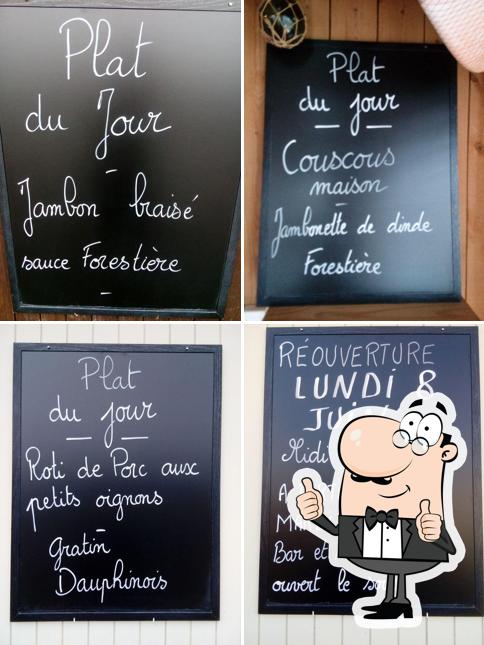 Plat
du Jour
Jambon braisé
sauce Forestière
Plat
du jour
Couscous
maison
Jambonette de dinde
Forestière
Plat
du jour
Roti de Porc aux
petits oignons
gratin
Dauphinois
RÉOUVERTURE
LUNDI 8
Bar et
ouvert le